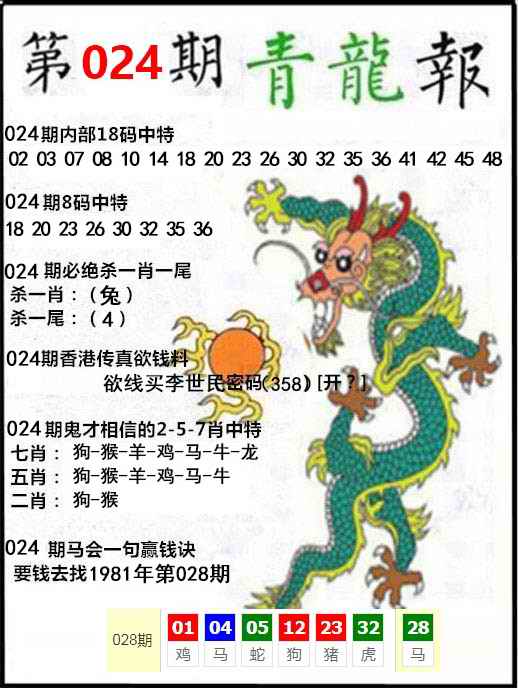 第024期青龍報
024期内部18码中特
02 03 07 08 10 14 18 20 23 26 30 32 35 36 41 42 45 48
024期8码中特
18 20 23 26 30 32 35 36
024 期必绝杀一肖一尾
杀一肖：（兔）
杀一尾：（4）
024期香港传真欲钱料
欲线买李世民密码(358)[开？]
024期鬼才相信的2-5-7肖中特
七肖：狗-猴-羊-鸡-马-牛-龙
五肖：狗-猴-羊-鸡-马-牛
二肖：狗-猴
024 期马会一句赢钱诀
要钱去找1981年第028期
028期 01 04 05 12 23 32 28
鸡 马 蛇 狗 猪 虎 马